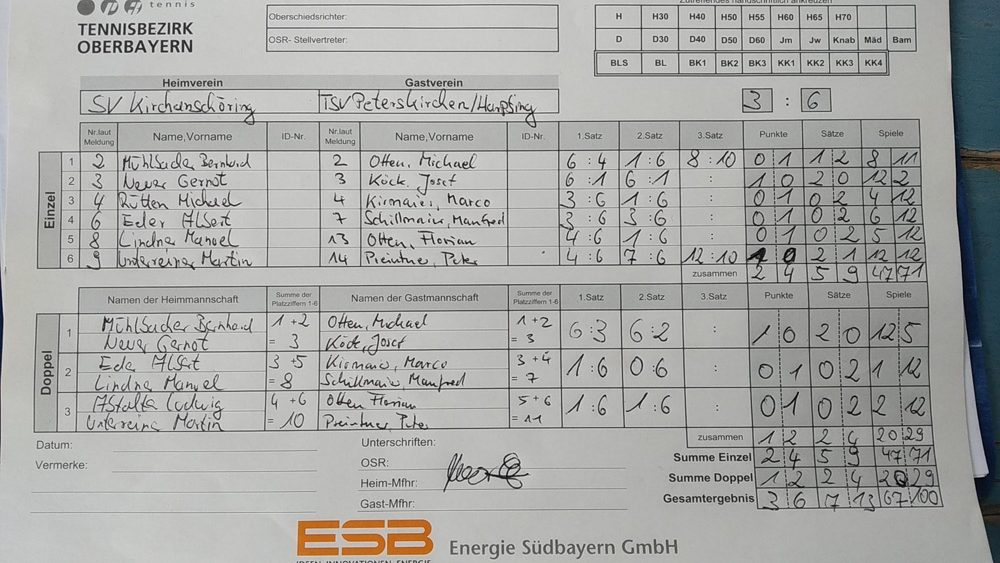 tennis
TENNISBEZIRK
OBERBAYERN
Oberschiedsrichter:
OSR- Stellvertreter:
Zutreffendes handschriftlich ankreuzen
H H30 H40 H50 H55 H60 H65 H70
D D30 D40 D50 D60 Jm Jw Knab Mäd Bam
BLS BL BK1 BK2 BK3 KK1 KK2 KK3 KK4
Heimverein Gastverein
SV Kirchanschöring TSV Peterskirchen/Harpfing 3 : 6
Nr.laut Meldung Name,Vorname ID-Nr. Nr.laut Meldung Name,Vorname ID-Nr. 1.Satz 2.Satz 3.Satz Punkte Sätze Spiele
Einzel
1 2 Mühlbacher Bernhard 2 Otten, Michael 6 : 4 1 : 6 8 : 10 0 1 1 2 8 11
2 3 Neuer Gernot 3 Köck, Josef 6 : 1 6 : 1 : 1 0 2 0 12 2
3 4 Rütten Michael 4 Kirmaier, Marco 3 : 6 1 : 6 : 0 1 0 2 4 12
4 6 Eder Albert 7 Schillmaier, Manfred 3 : 6 3 : 6 : 0 1 0 2 6 12
5 8 Lindner Manuel 13 Otten, Florian 4 : 6 1 : 6 : 0 1 0 2 5 12
6 9 Unterreiner Martin 14 Preintner, Peter 4 : 6 7 : 6 12 : 10 1 0 2 1 12 12
zusammen 2 4 5 9 47 71
Namen der Heimmannschaft Summe der Platzziffern 1-6 Namen der Gastmannschaft Summe der Platzziffern 1-6 1.Satz 2.Satz 3.Satz Punkte Sätze Spiele
Doppel
1 Mühlbacher Bernhard 1 + 2 Otten, Michael 1 + 2 6 : 3 6 : 2 : 1 0 2 0 12 5
Neuer Gernot = 3 Köck, Josef = 3
2 Eder Albert 3 + 5 Kirmaier, Marco 3 + 4 1 : 6 0 : 6 : 0 1 0 2 1 12
Lindner Manuel = 8 Schillmaier, Manfred = 7
3 Astalta Ludwig 4 + 6 Otten Florian 5 + 6 1 : 6 1 : 6 : 0 1 0 2 2 12
Unterreiner Martin = 10 Preintner, Peter = 11
zusammen 1 2 2 4 20 29
Datum: Unterschriften: Summe Einzel 2 4 5 9 47 71
Vermerke: OSR: Summe Doppel 1 2 2 4 20 29
Heim-Mfhr: Gesamtergebnis 3 6 7 13 67 100
Gast-Mfhr:
ESB Energie Südbayern GmbH
IDEEN. INNOVATIONEN. ENERGIE.